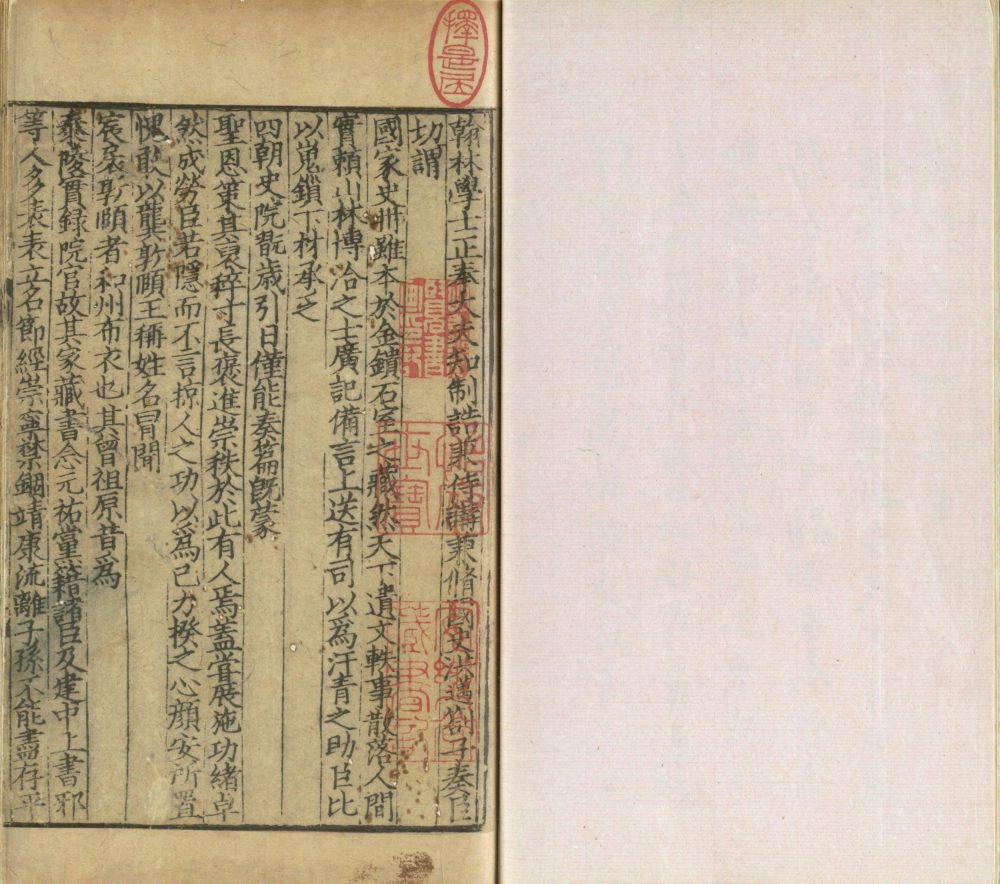 擇是居
翰林學士正奉大夫知制誥兼侍講兼脩國史洪邁劄子奏臣
切謂
國家史冊雖本於金鐀石室之藏然天下遺文軼事散落人間
實賴山林博洽之士廣記備言上送有司以為汗青之助臣比
以嵬鎖下材承乏
四朝史院翫歲引日僅能奏篇旣蒙
聖恩策其吏稡寸長褒進崇秩於此有人焉蓋嘗展施功緒卓
然成勞臣若隱而不言掠人之功以為己力揆之心顏安所置
愧敢以龔敦頤王稱姓名冐聞
宸扆敦頤者和州布衣也其曾祖原昔為
泰陵實録院官故其家藏書念元祐黨籍諸臣及建中上書邪
等人多表表立名節經崇寧禁錮靖康流離子孫不能盡存平